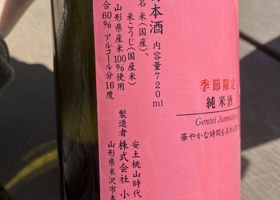 本酒 内容量720ml
名 米(国産)、
米こうじ(国産米)
山形県産米100%使用
合60% アルコール分16度
製造者 株式会社 小
安土桃山時代
山形県米沢市本
季節限定
純米酒
Gentei Junmai
華やかな時間を